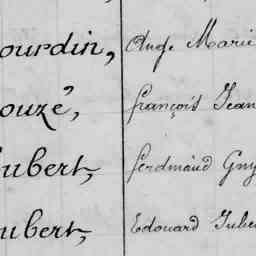 ourdin, Ange Marie
ouzé, françois Jean
ubert, ferdinand
ubert, Edouard Jule